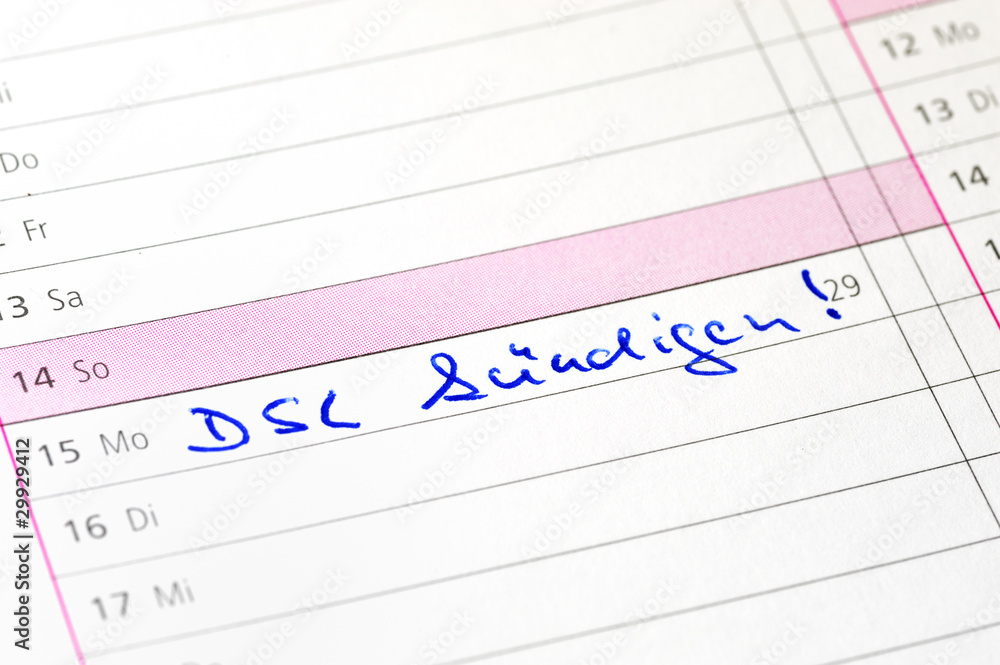 Do
Fr
13 Sa
14 So
15 Mo DSL kündigen! 29
16 Di
17 Mi
12 Mo
13 Di
14
Adobe Stock | #29929412